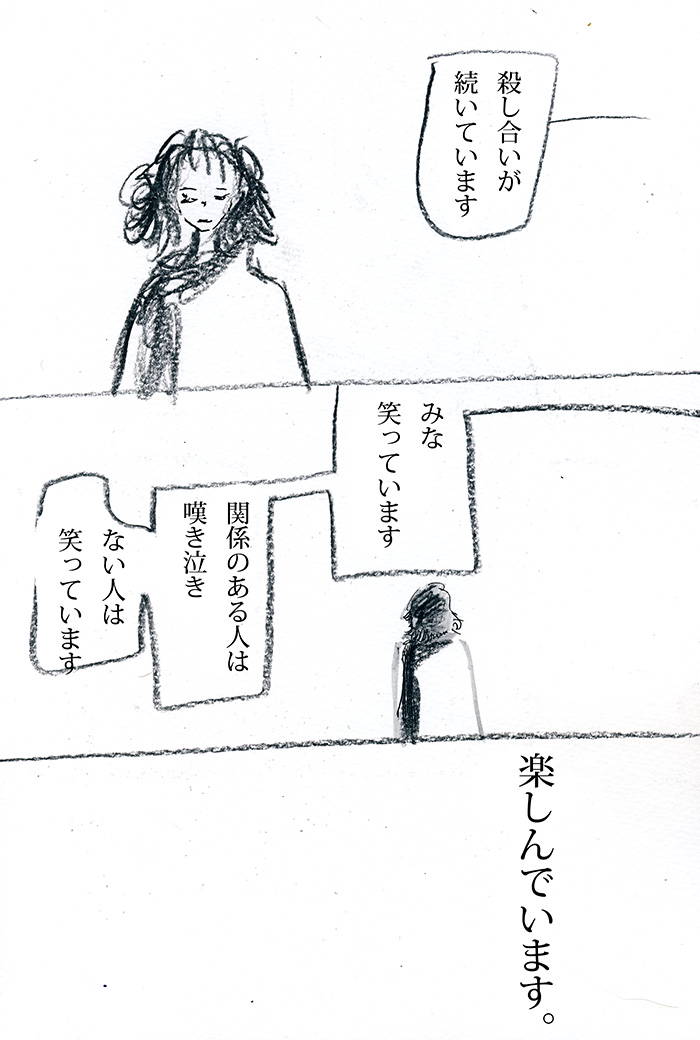 殺し合いが
続いています
みな
笑っています
関係のある人は
嘆き泣き
ない人は
笑っています
楽しんでいます。